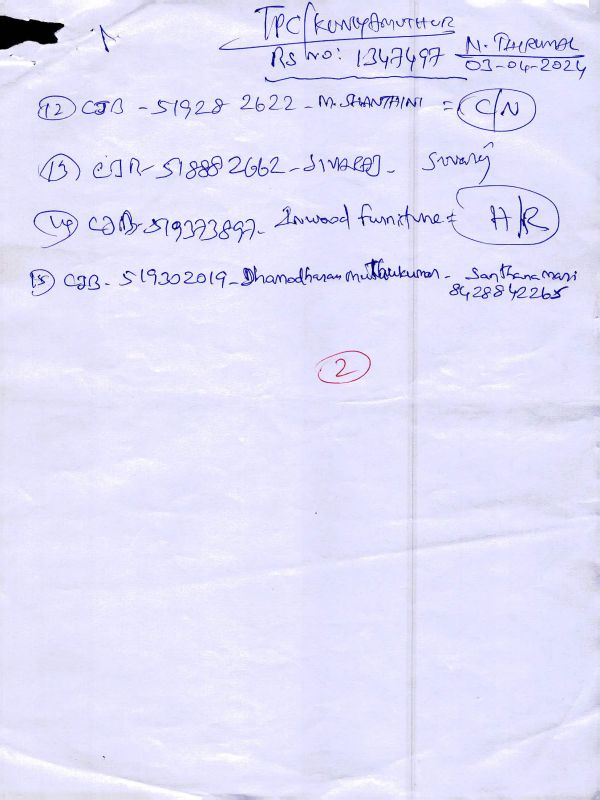 TPC/KUNIYAMUTHUR
RS NO: 1347497
N. THIRUMAL
03-04-2024
12 CJB - 51928 2622 - M. SHANTHINI = C/N
13 CJB - 518882662 - SIVARAJ - Sivaraj
14 CJB - 519373897 - Inwood furniture = H/R
15 CJB - 519302019 - Dhamodharan Muthukumar - Santhanamari
8428842265
2